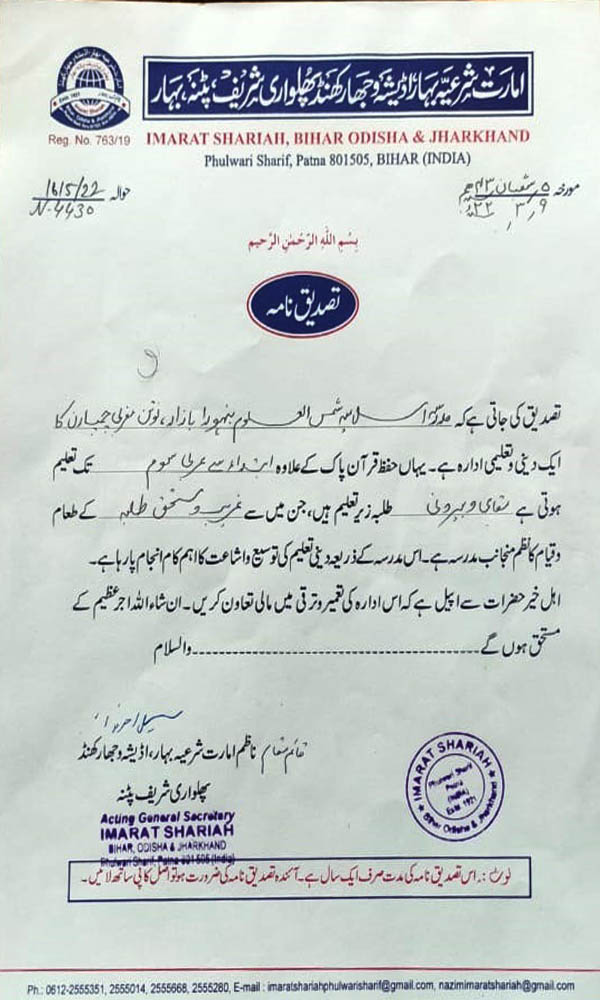 امارت شرعیہ بہار، اڈیشہ وجھارکھنڈ پھلواری شریف، پٹنہ، بہار
Reg. No. 763/19
IMARAT SHARIAH, BIHAR ODISHA & JHARKHAND
Phulwari Sharif, Patna 801505, BIHAR (INDIA)
حوالہ 16/5/22
N-4430
مورخہ ۵ شعبان ۴۳
۹ ۳ ۲۲
بِسْمِ اللهِ الرَّحْمٰنِ الرَّحِیْمِ
تصدیق نامہ
تصدیق کی جاتی ہے کہ مدرسہ اسلامیہ شمس العلوم بازار، نوتن مغربی چمپارن کا
ایک دینی و تعلیمی ادارہ ہے۔ یہاں حفظ قرآن پاک کے علاوہ ابتداء سے عربی سوم تک تعلیم
ہوتی ہے مقامی و بیرونی طلبہ زیر تعلیم ہیں، جن میں سے غریب و مستحق طلبہ کے طعام
وقیام کا نظم منجانب مدرسہ ہے۔ اس مدرسہ کے ذریعہ دینی تعلیم کی توسیع واشاعت کا اہم کام انجام پارہا ہے۔
اہل خیر حضرات سے اپیل ہے کہ اس ادارہ کی تعمیر و ترقی میں مالی تعاون کریں۔ ان شاء اللہ اجر عظیم کے
مستحق ہوں گے ---------- والسلام
قائم مقام ناظم امارت شرعیہ بہار، اڈیشہ وجھارکھنڈ
پھلواری شریف پٹنہ
Acting General Secretary
IMARAT SHARIAH
BIHAR, ODISHA & JHARKHAND
Phulwari Sharif, Patna 801505 (India)
IMARAT SHARIAH
Phulwari Sharif
Patna
(INDIA)
Estd. 1921
Bihar Odisha & Jharkhand
نوٹ :۔ اس تصدیق نامہ کی مدت صرف ایک سال ہے۔ آئندہ تصدیق نامہ کی ضرورت ہو تو اصل کاپی ساتھ لائیں۔
Ph.: 0612-2555351, 2555014, 2555668, 2555280, E-mail : imaratshariahphulwarisharif@gmail.com, nazimimaratshariah@gmail.com